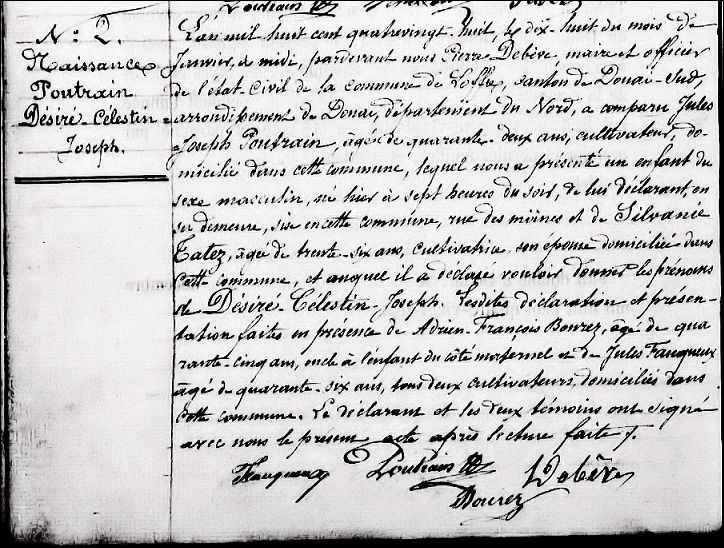 N.º 2.
Naissance
Poutrain
Désiré-Célestin-
Joseph.
L'an mil huit cent quatrevingt-huit, le dix-huit du mois de
Janvier, à midi, pardevant nous Pierre Debève, maire et officier
de l'état-civil de la commune de Loffre, canton de Douai-Sud,
arrondissement de Douai, département du Nord, a comparu Jules
Joseph Poutrain, âgé de quarante-deux ans, cultivateur, do-
micilié dans cette commune, lequel nous a présenté un enfant du
sexe masculin, né hier à sept heures du soir, de lui déclarant, en
sa demeure, sise en cette commune, rue des et de Silvanie
Tatez, âgée de trente-six ans, cultivatrice, son épouse domiciliée dans
cette commune, et auquel il a déclaré vouloir donner les prénoms
de Désiré-Célestin-Joseph. Lesdites déclaration et présen-
tation faites en présence de Adrien-François Bourez, âgé de qua
rante-cinq ans, oncle à l'enfant du côté maternel et de Jules Fauqueux
âgé de quarante-six ans, tous deux cultivateurs, domiciliés dans
cette commune. Le déclarant et les deux témoins ont signé
avec nous le présent acte après lecture faite.
Fauqueux Poutrain Debève
Bourez